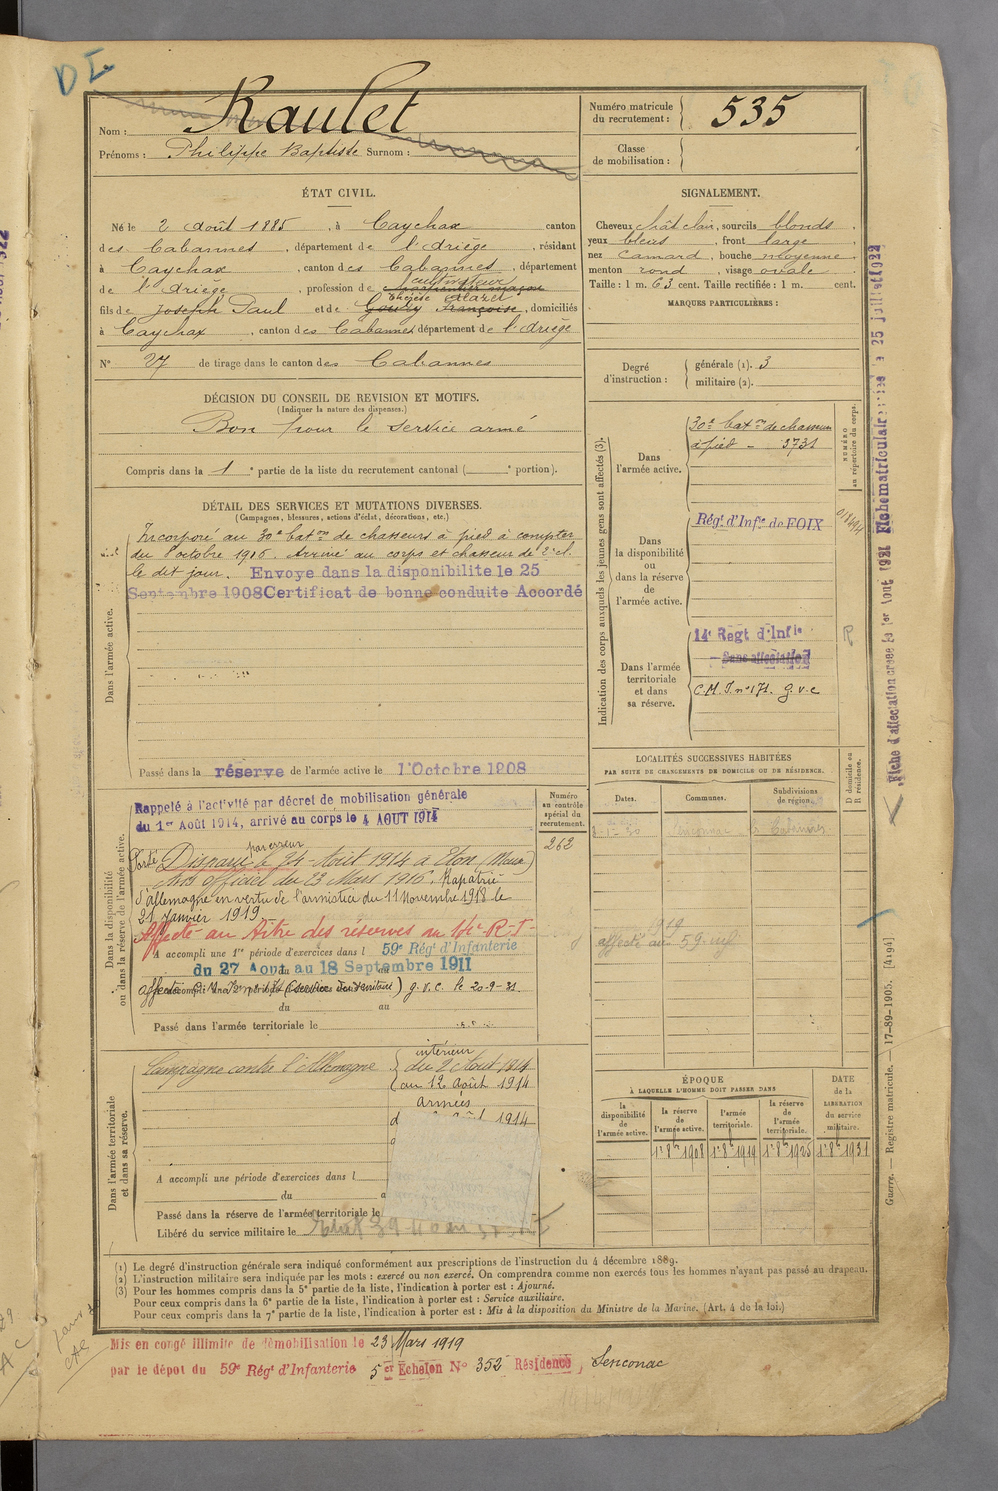 D I
Raulet
Nom :
Prénoms : Philippe Baptiste Surnom :
Numéro matricule du recrutement : 535
Classe de mobilisation :
ÉTAT CIVIL.
Né le 2 août 1885, à Caychax canton
des Cabannes, département de l'Ariège, résidant
à Caychax, canton des Cabannes, département
de l'Ariège, profession de cultivateur
fils de Joseph Paul et de Gouzy Françoise, domiciliés
Thérèse
à Caychax, canton des Cabannes département de l'Ariège
N° 27 de tirage dans le canton des Cabannes
DÉCISION DU CONSEIL DE REVISION ET MOTIFS.
(Indiquer la nature des dispenses.)
Bon pour le service armé
Compris dans la 1e partie de la liste du recrutement cantonal ( e portion).
SIGNALEMENT.
Cheveux chât clair, sourcils blonds
yeux bleus, front large
nez camard, bouche moyenne,
menton rond, visage ovale
Taille : 1 m. 63 cent. Taille rectifiée : 1 m. cent.
MARQUES PARTICULIÈRES :
Degré d'instruction :
générale (1). 3
militaire (2).
DÉTAIL DES SERVICES ET MUTATIONS DIVERSES.
(Campagnes, blessures, actions d'éclat, décorations, etc.)
Dans l'armée active.
Incorporé au 30e baton de chasseurs à pied à compter
du 8 octobre 1906. Arrivé au corps et chasseur de 2e cl.
le dit jour. Envoye dans la disponibilite le 25
Septembre 1908 Certificat de bonne conduite Accordé
Passé dans la réserve de l'armée active le 1 Octobre 1908
Indication des corps auxquels les jeunes gens sont affectés (3).
Dans l'armée active.
30e baton de chasseurs
à pied - 3731
NUMÉRO au répertoire du corps.
Dans la disponibilité ou dans la réserve de l'armée active.
Régt d'Infie de FOIX
Dans l'armée territoriale et dans sa réserve.
14e Regt d'Infie
Sans affectation
C.M.I. n° 171. g.v.c
R
Dans la disponibilité ou dans la réserve de l'armée active.
Rappelé à l'activité par décret de mobilisation générale
du 1er Août 1914, arrivé au corps le 4 AOUT 1914
par erreur
Porté Disparu le 24 Août 1914 à Eton (Meuse)
Avis officiel du 23 Mars 1916. Rapatrié
d'Allemagne en vertu de l'armistice du 11 Novembre 1918 le
21 Janvier 1919
Affecté au titre des réserves au 14e R-I-
A accompli une 1re période d'exercices dans l 59e Régt d'Infanterie
du 27 Aout au 18 Septembre 1911
g.v.c. le 20-9-31
du au
Passé dans l'armée territoriale le
Numéro au contrôle spécial du recrutement.
262
LOCALITÉS SUCCESSIVES HABITÉES
PAR SUITE DE CHANGEMENTS DE DOMICILE OU DE RÉSIDENCE.
Dates.
Communes.
Subdivisions de région.
D domicile ou R résidence.
Senconac
1919
affecté au 59e inf
Dans l'armée territoriale et dans sa réserve.
Campagne contre l'Allemagne
intérieur
du 2 Août 1914
au 12 Août 1914
armées
1914
A accompli une période d'exercices dans l
du a
Passé dans la réserve de l'armée territoriale le
Libéré du service militaire le
ÉPOQUE
À LAQUELLE L'HOMME DOIT PASSER DANS
la disponibilité de l'armée active.
la réserve de l'armée active.
l'armée territoriale.
la réserve de l'armée territoriale.
DATE de la LIBÉRATION du service militaire.
1er 8bre 1908
1er 8bre 1919
1er 8bre 1925
1er 8bre 1931
(1) Le degré d'instruction générale sera indiqué conformément aux prescriptions de l'instruction du 4 décembre 1889.
(2) L'instruction militaire sera indiquée par les mots : exercé ou non exercé. On comprendra comme non exercés tous les hommes n'ayant pas passé au drapeau.
(3) Pour les hommes compris dans la 5e partie de la liste, l'indication à porter est : Ajourné.
Pour ceux compris dans la 6e partie de la liste, l'indication à porter est : Service auxiliaire.
Pour ceux compris dans la 7e partie de la liste, l'indication à porter est : Mis à la disposition du Ministre de la Marine. (Art. 4 de la loi.)
Mis en congé illimité de démobilisation le 23 Mars 1919
par le dépot du 59e Régt d'Infanterie 5er Echelon N° 352 Résidence Senconac
Guerre. — Registre matricule. — 17-89-1905. [4194]
Fiche d'affectation créée le 1er Aout 1921 Fiche matriculaire le 25 juillet 1922